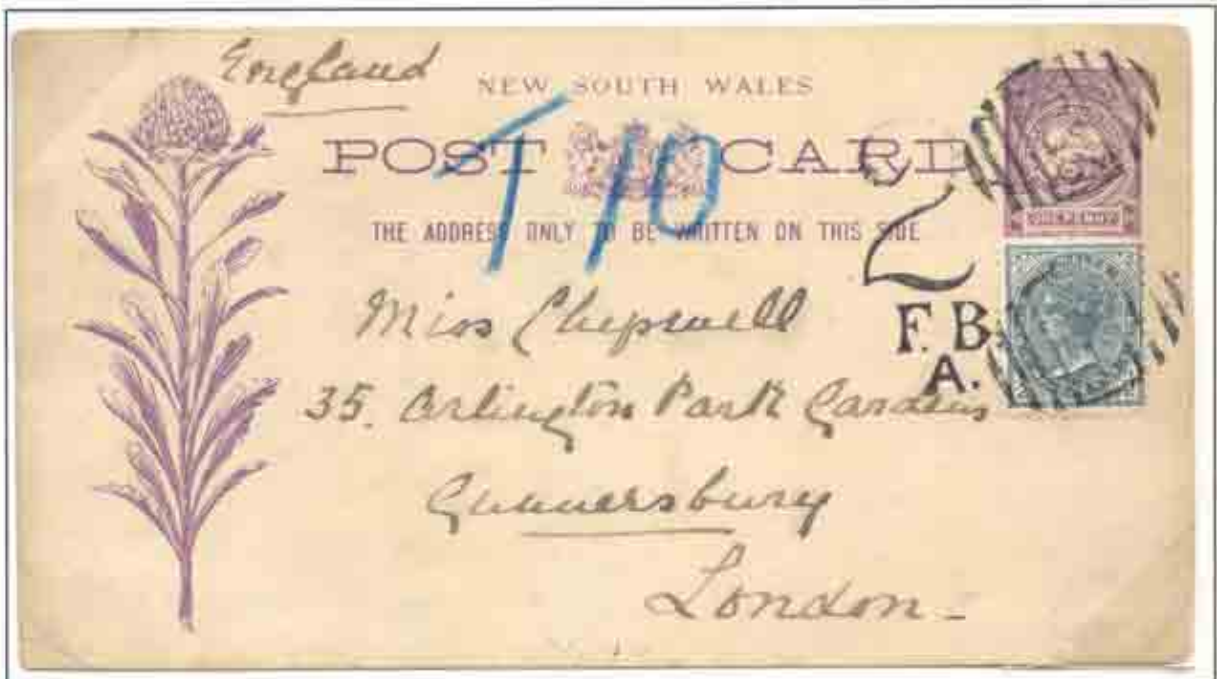 England
NEW SOUTH WALES
POST CARD
T 10
THE ADDRESS ONLY TO BE WRITTEN ON THIS SIDE
2
Miss Chepwell
F. B.
A.
35. Arlington Park Gardens
Gunnersbury
London